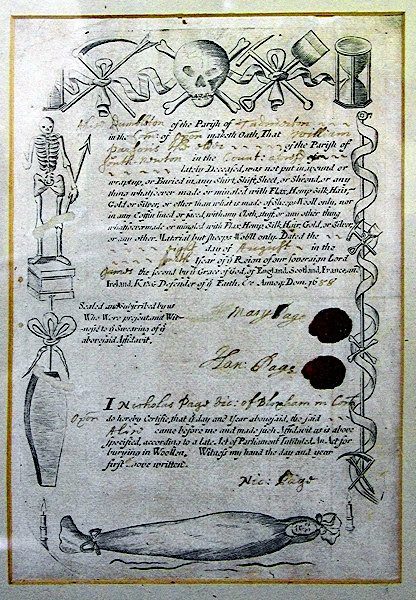 of the Parish of
in the of Oxon maketh Oath, That William
of the Parish of
South newton in the County aforesd
lately Deceased, was not put in, wound or
wrapt up, or Buried in, any Shirt, Shift, Sheet, or Shroud, or any
thing whatsoever made or mingled with Flax, Hemp, Silk, Hair,
Gold or Silver, or other than what is made of Sheeps Wooll only, nor
in any Coffin lined or faced, with any Cloth, stuff, or any other thing
whatsoever made or mingled with Flax, Hemp, Silk, Hair, Gold, or Silver,
or any other Material but sheeps Wooll only. Dated the
day of August in the
Year of ye Reign of our Sovereign Lord
James the second by ye Grace of God, of England, Scotland, France, and
Ireland, King Defender of ye Faith, &c Annoq. Dom. 1688
Sealed and Subscribed by us
Who Were present, and Wit-
ness to ye Swearing of ye
aboresaid Affidavit,
Mary Page
Han: Page
I Nicholas Page vic: of Bloxham in Com
Oxon do hereby Certifie, that ye day and Year abovesaid, the said
came before me and made such Affidavit as is above
specified, according to a late Act of Parliament Intituled, An Act for
burying in Woollen, Witness my hand the day and year
first above written.
Nic: Page